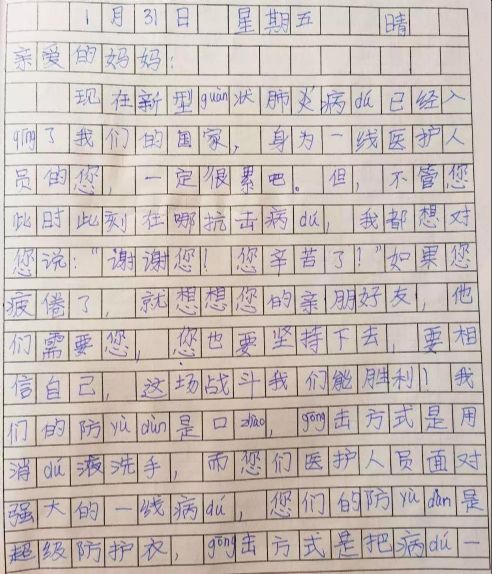 1月31日 星期五 晴
亲爱的妈妈：
现在新型guàn状肺炎病dú已经入
qīng了我们的国家，身为一线医护人
员的您，一定很累吧。但，不管您
此时此刻在哪抗击病dú，我都想对
您说："谢谢您！您辛苦了！"如果您
疲倦了，就想想您的亲朋好友，他
们需要您，您也要坚持下去，要相
信自己，这场战斗我们能胜利！我
们的防yù dùn是口zhào，gōng击方式是用
消dú液洗手，而您们医护人员面对
强大的一线病dú，您们的防yù dùn是
超级防护衣，gōng击方式是把病dú一